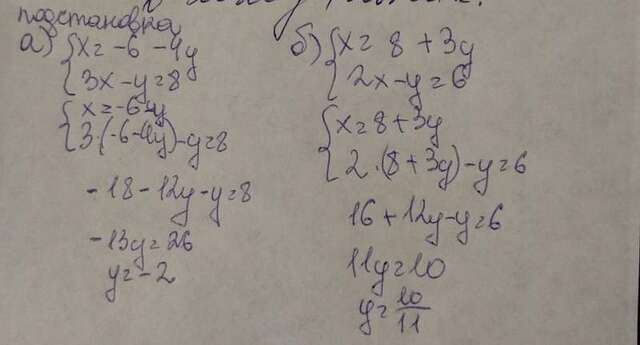 подстановка
а) { x = -6 - 4y
{ 3x - y = 8
{ x = -6 - 4y
{ 3·(-6 - 4y) - y = 8
-18 - 12y - y = 8
-13y = 26
y = -2
б) { x = 8 + 3y
{ 2x - y = 6
{ x = 8 + 3y
{ 2·(8 + 3y) - y = 6
16 + 12y - y = 6
11y = 10
y = 10/11